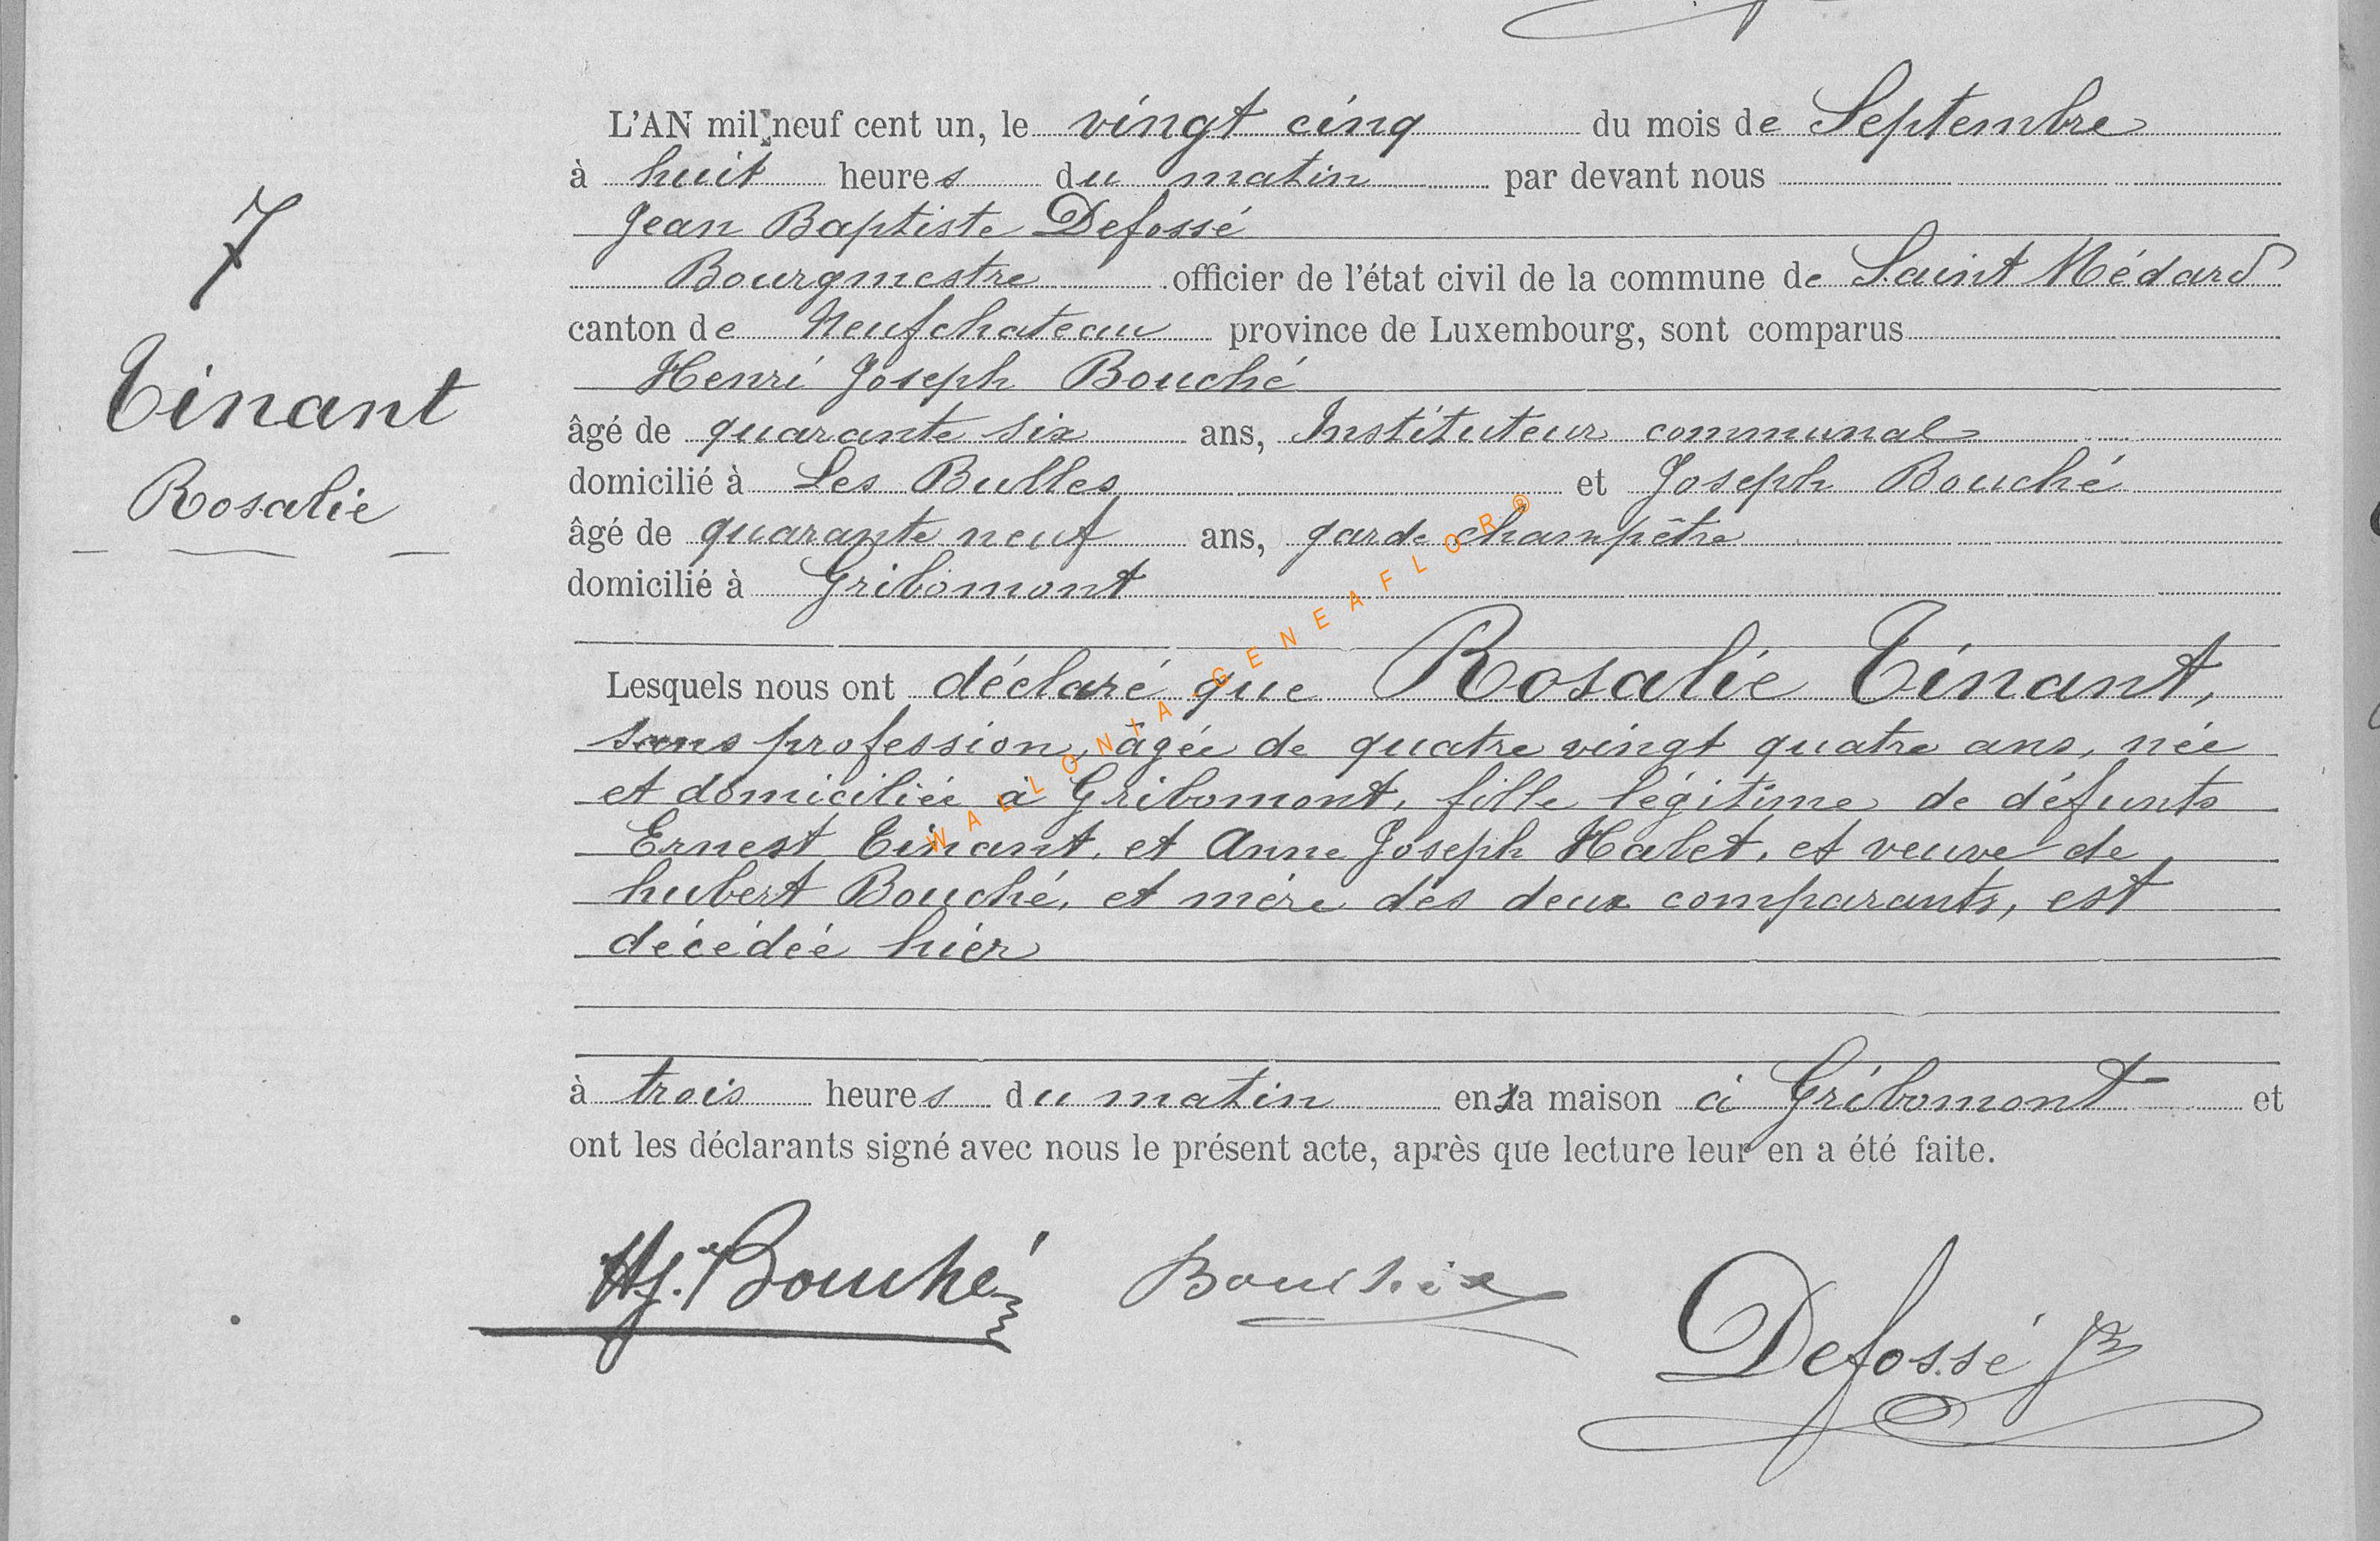 7
Tinant
Rosalie
L'AN mil neuf cent un, le vingt cinq du mois de Septembre
à huit heures du matin par devant nous
Jean Baptiste Defossé
Bourgmestre officier de l'état civil de la commune de Saint Médard
canton de Neufchateau province de Luxembourg, sont comparus
Henri Joseph Bouché
âgé de quarante six ans, Instituteur communal
domicilié à Les Bulles et Joseph Bouché
âgé de quarante neuf ans, garde champêtre
domicilié à Gribomont
Lesquels nous ont déclaré que Rosalie Tinant,
sans profession, âgée de quatre vingt quatre ans, née
et domiciliée à Gribomont, fille légitime de défunts
Ernest Tinant, et Anne Joseph Halet, et veuve de
hubert Bouché, et mère des deux comparants, est
décédée hier
à trois heures du matin en sa maison à Gribomont et
ont les déclarants signé avec nous le présent acte, après que lecture leur en a été faite.
HJ. Bouché Bouché Defossé JB
WALLONIA-GENEAFLOR®